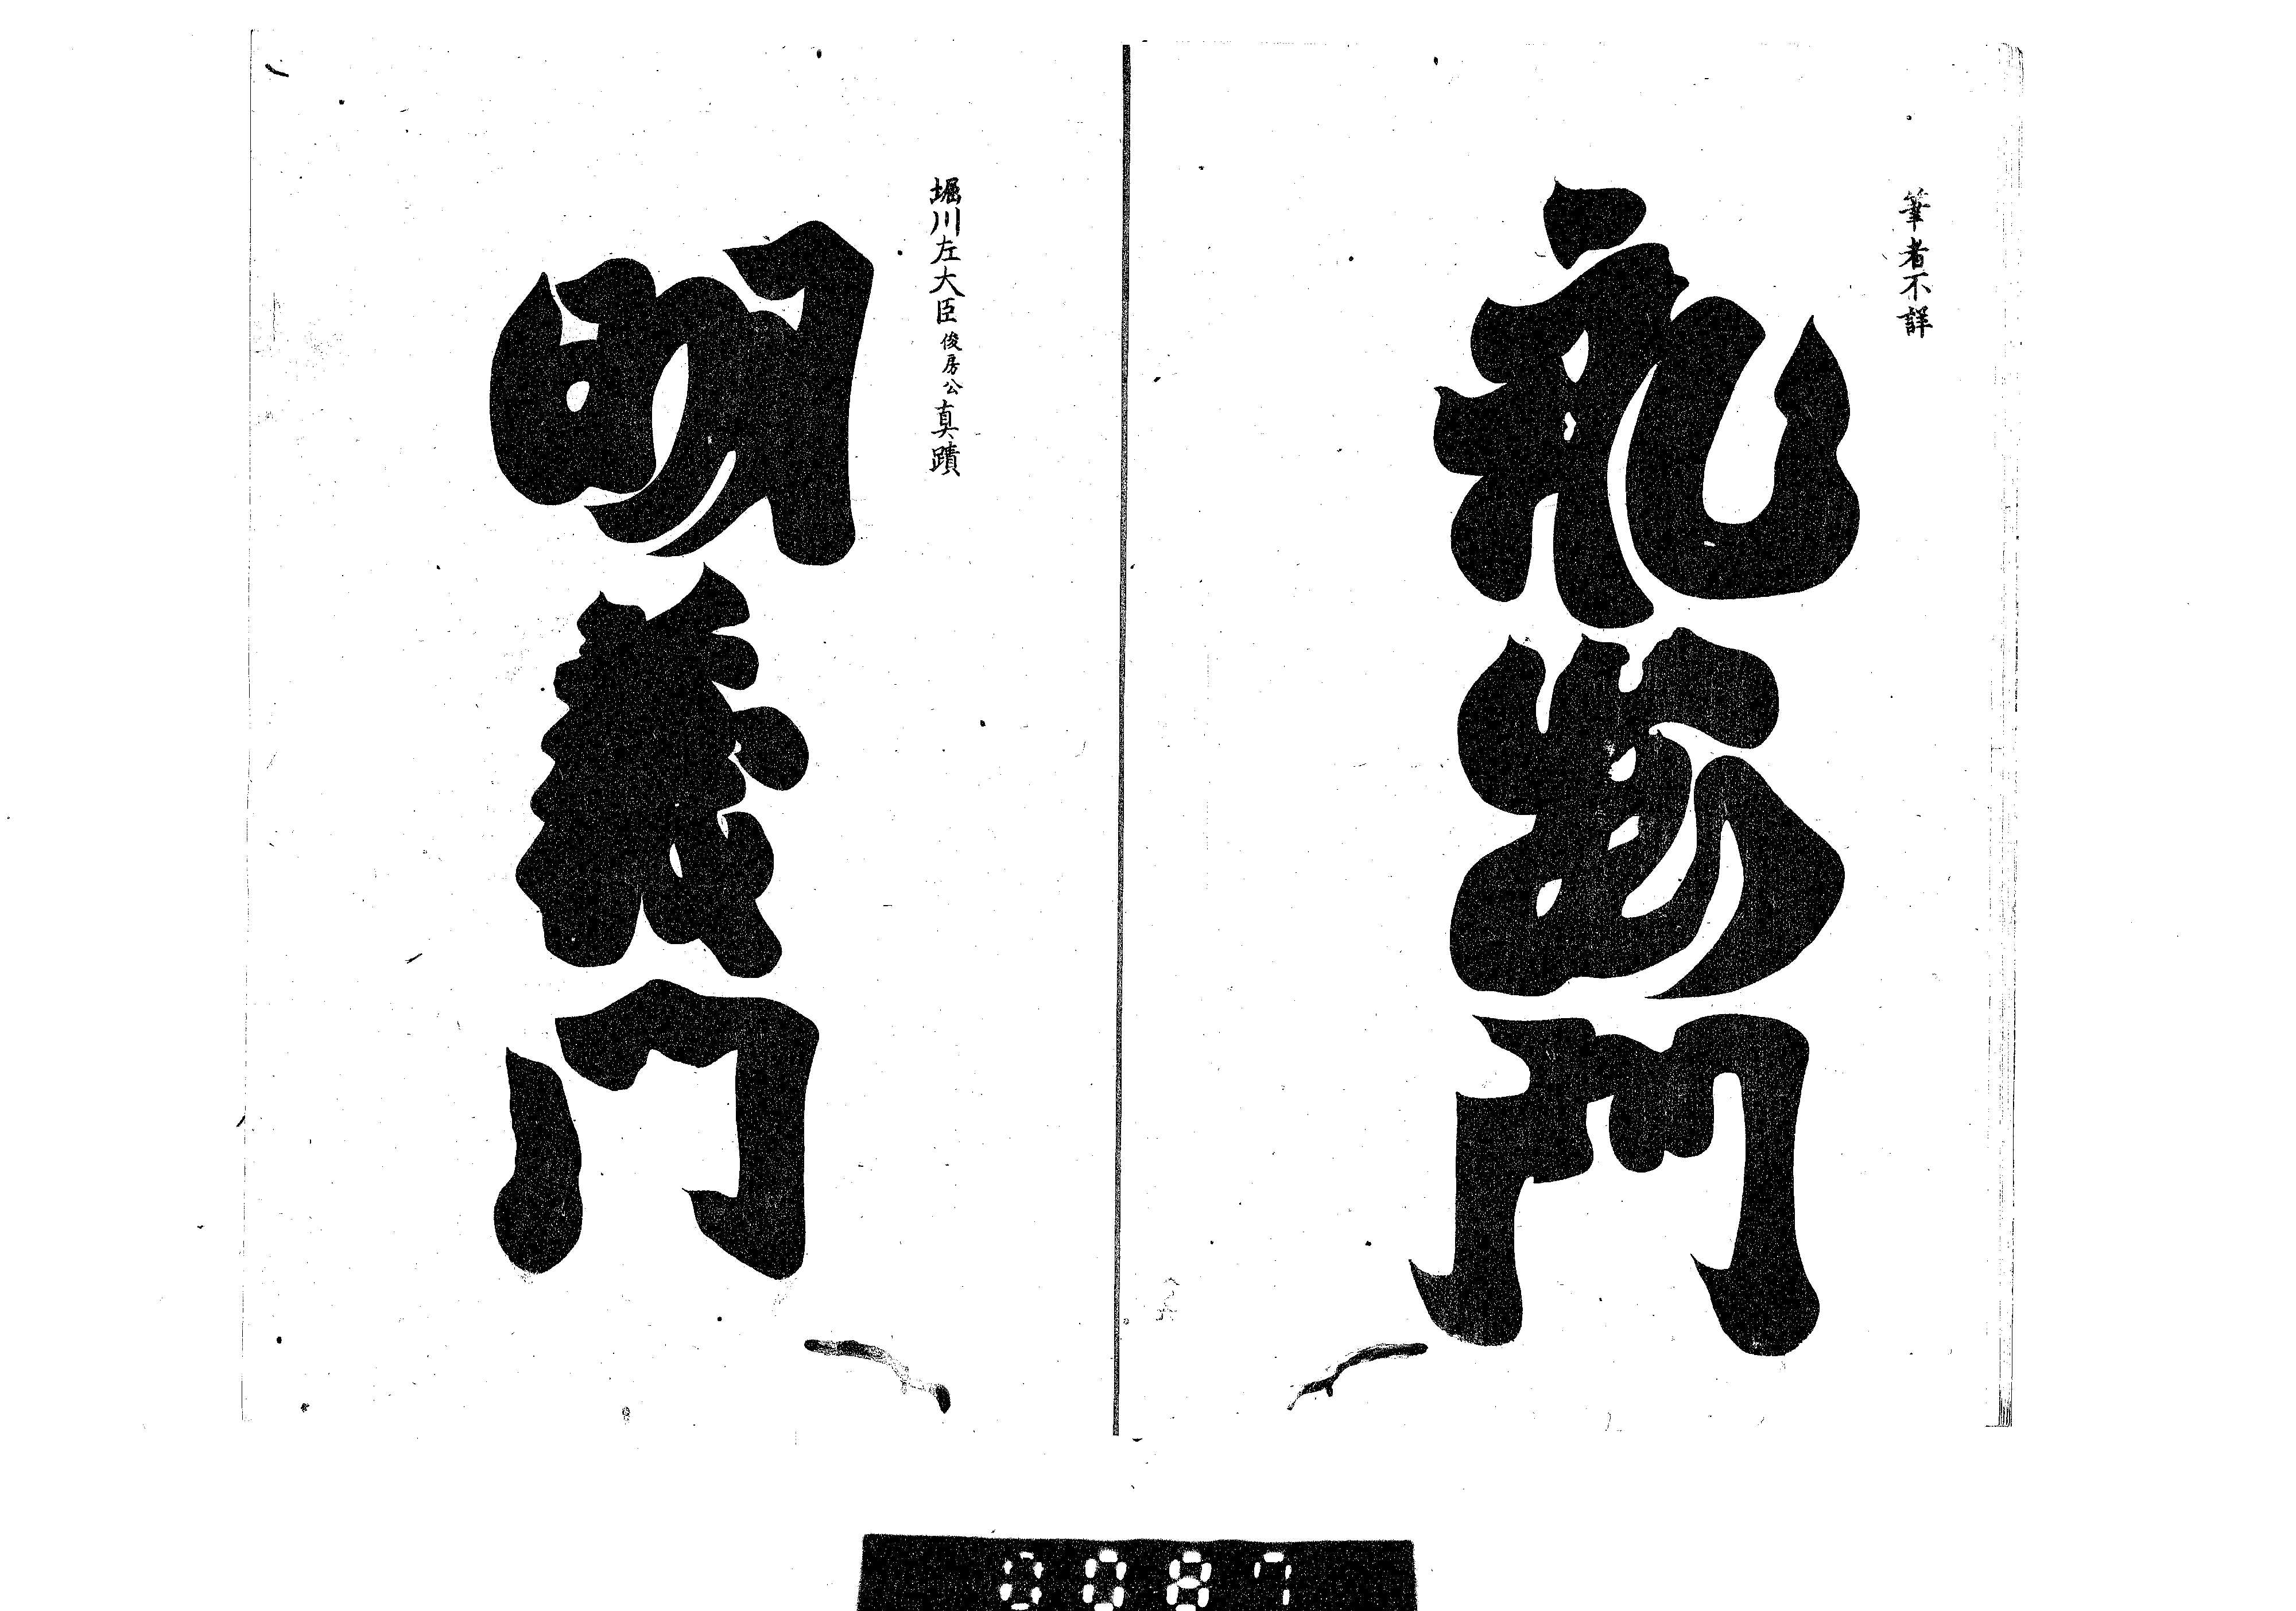 筆者不詳
礼 門
堀川左大臣俊房公真蹟
明義門
0087